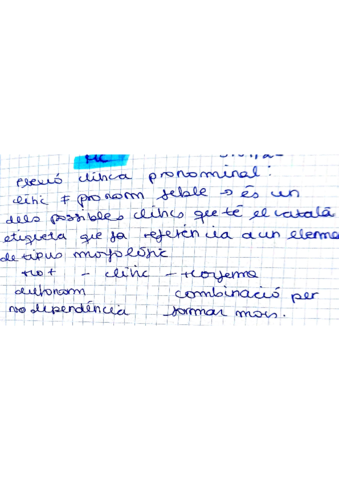 MC
Flexió clítica pronominal:
clític ≠ pronom feble → és un
dels possibles clítics que té el català
etiqueta que fa referència a un eleme
de tipus morfològic
mot - clític - morfema
autonom combinació per
no dependència formar mots.